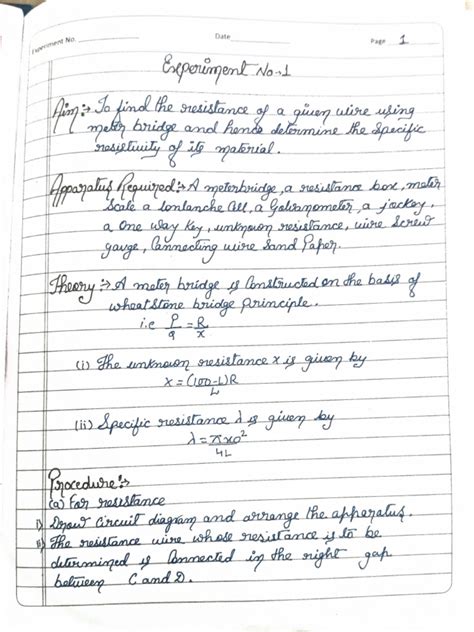 Experiment No.
Date
Page 1
Experiment No→1
Aim:→ To find the resistance of a given wire using
meter bridge and hence determine the specific
resistivity of its material.
Apparatus Required:→ A meterbridge, a resistance box, meter
scale a lonlanche Cell, a Galvanometer, a jockey,
a One way key, unknown resistance, wire screw
gauge, Connecting wire Sand Paper.
Theory:→ A meter bridge is Constructed on the basis of
wheatstone bridge principle.
i.e P/q = R/x
(i) The unknown resistance x is given by
x = (100-L)R/L
(ii) Specific resistance λ is given by
λ = πxD²/4L
Procedure:→
(a) For resistance
i) Draw Circuit diagram and arrange the apparatus.
ii) The resistance wire whose resistance is to be
determined is Connected in the right gap
between C and D.